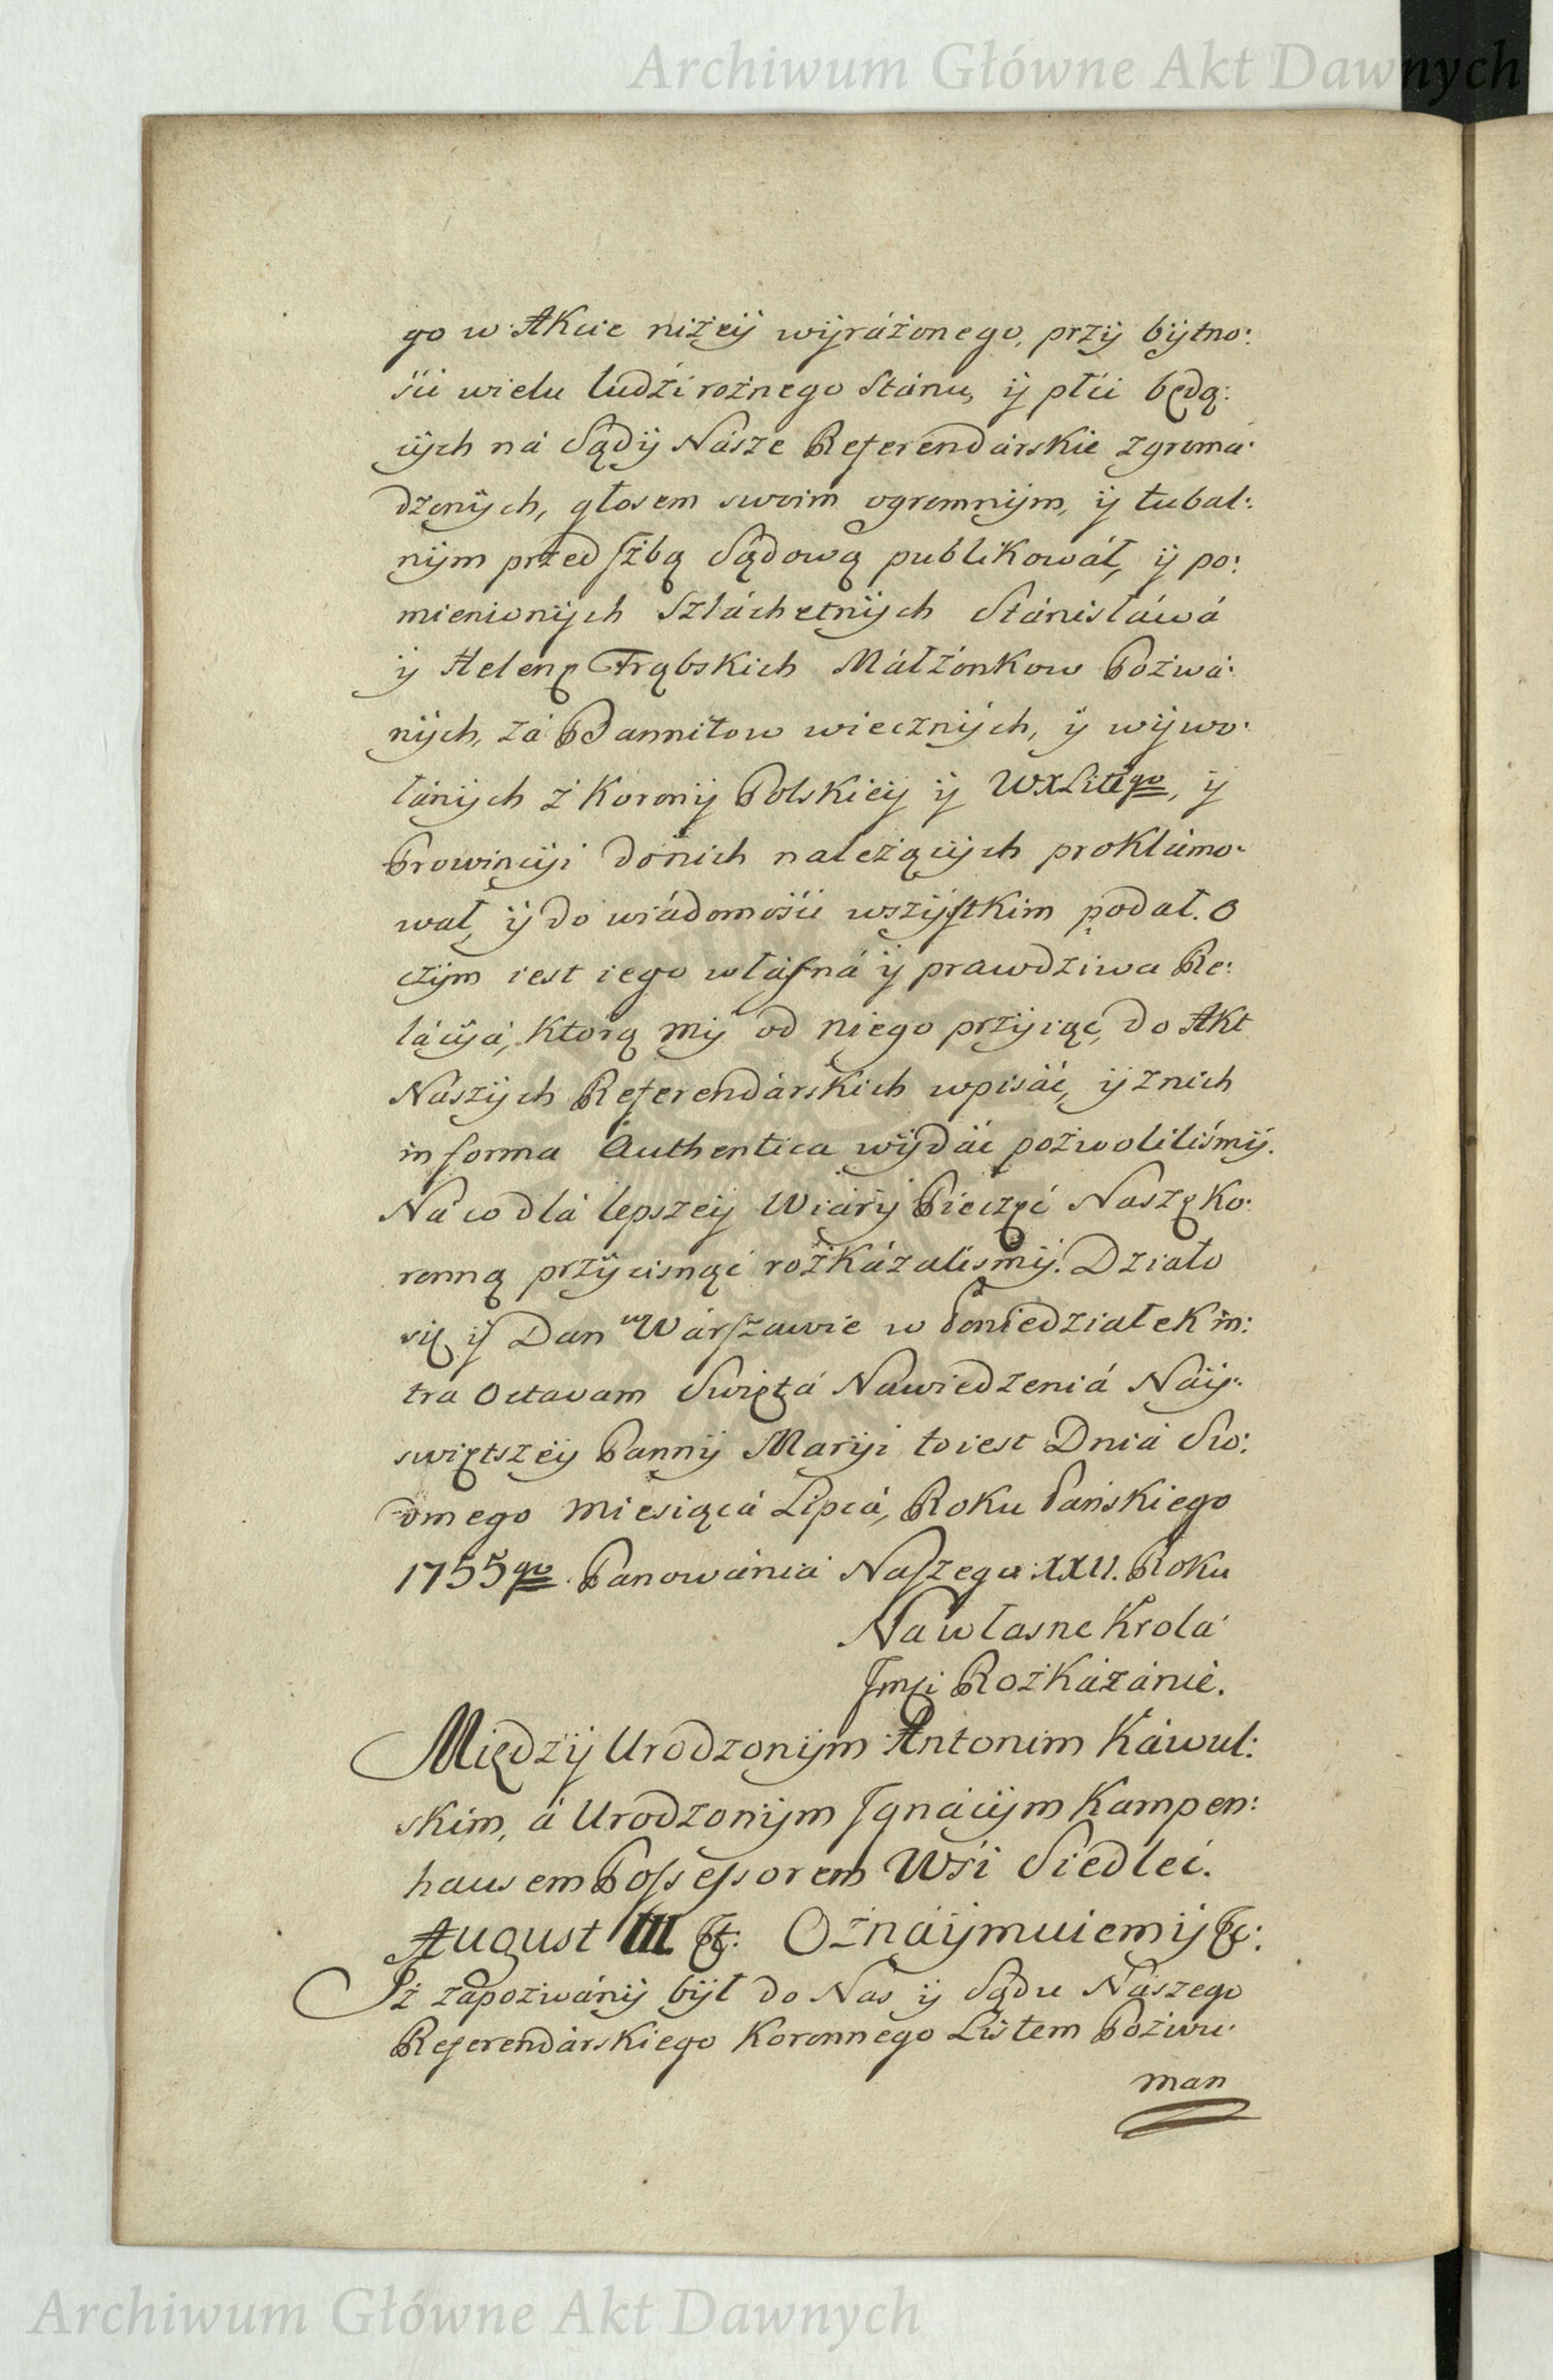 Archiwum Główne Akt Dawnych
go w Akcie niżeÿ wÿráżonego, przÿ bÿtno:
śći wielu ludźi rożnego Stánu, ÿ płći będą:
cÿch ná Sądÿ Násze Referendárskie zgromá:
dzonÿch, głosem swoim ogromnÿm, ÿ tubal:
nÿm przed Jzbą Sądową publikowáł, ÿ po:
mienionÿch Szláchetnÿch Stánisłáwá
ÿ Helenę Trąbskich Máłżonkow Pozwá:
nÿch, zá Bannitow wiecznÿch, ÿ wÿwo:
łánÿch z Koronÿ Polskieÿ ÿ WXLittgo, ÿ
Prowincÿi donich należącÿch proklámo:
wał, ÿ do wiádomośći wszÿstkim podał. O
czÿm iest iego włásná ÿ prawdziwa Re:
lácÿá, Ktorą mÿ od niego przÿiąć, do Akt
Nászÿch Referendárskich wpisáć, ÿ znich
in forma Authentica wÿdáć pozwoliliśmÿ.
Ná co dlá lepszeÿ Wiárÿ Pieczęć Naszę Ko:
ronną przÿcisnąć rozkázalismÿ. Działo
się ÿ Dan w Wárszawie w Poniedziałek in:
tra Octavam Swiętá Nawiedzeniá Náÿ:
swiętszeÿ Pannÿ Marÿi toiest Dniá Sio:
dmego Miesiącá Lipcá, Roku Pańskiego
1755go. Panowániá Naszego XXII. Roku
Na własne Krolá
Jmći Rozkázánie.
Międzÿ Urodzonÿm Antonim Káwul:
skim, á Urodzonÿm Jgnácÿm Kampen:
hausem Possessorem Wśi Siedleć.
August III &c: Oznáÿmuiemÿ &c:
Jż zapozwánÿ bÿł do Nas ÿ Sądu Nászego
Referendárskiego Koronnego Listem Pozwu:
man
Archiwum Główne Akt Dawnych